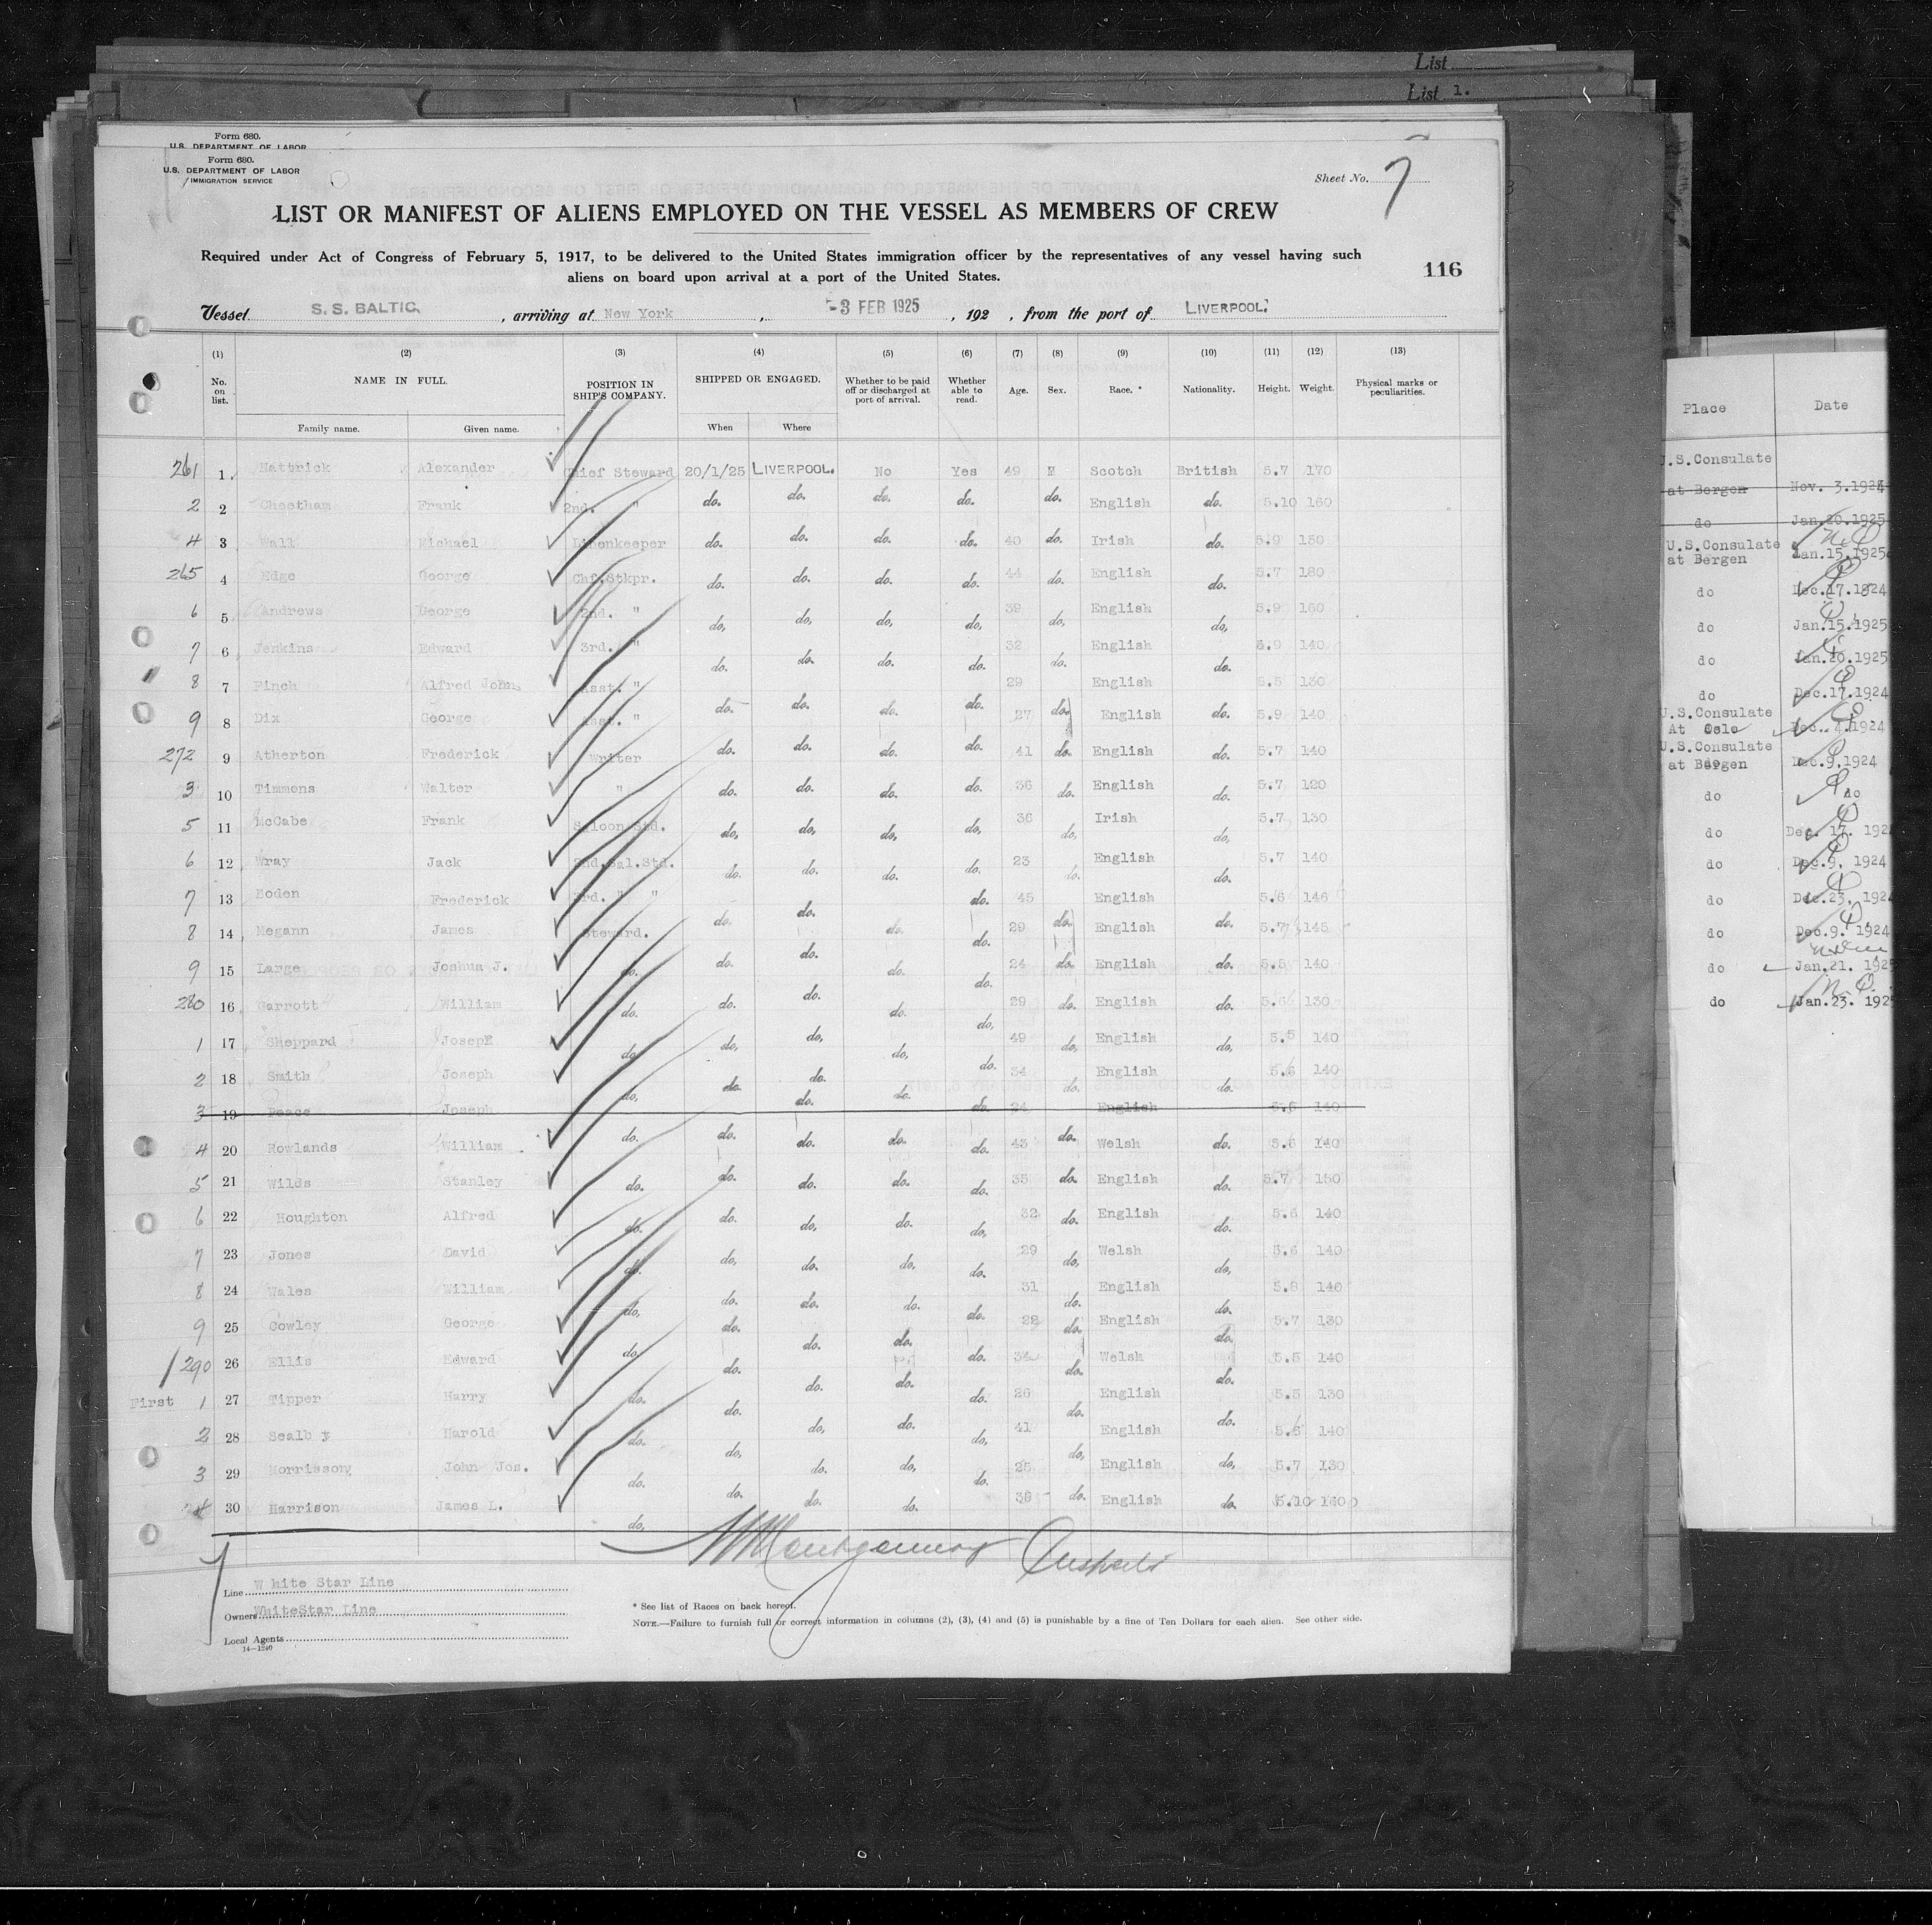 List
List 1.
Form 680.
U.S. DEPARTMENT OF LABOR
Form 680.
U.S. DEPARTMENT OF LABOR
IMMIGRATION SERVICE
Sheet No. 7
LIST OR MANIFEST OF ALIENS EMPLOYED ON THE VESSEL AS MEMBERS OF CREW
Required under Act of Congress of February 5, 1917, to be delivered to the United States immigration officer by the representatives of any vessel having such
aliens on board upon arrival at a port of the United States.
116
Vessel S. S. BALTIC, arriving at New York, -3 FEB 1925, 192 , from the port of LIVERPOOL.
(1) (2) (3) (4) (5) (6) (7) (8) (9) (10) (11) (12) (13)
No. on list. NAME IN FULL. POSITION IN SHIP'S COMPANY. SHIPPED OR ENGAGED. Whether to be paid off or discharged at port of arrival. Whether able to read. Age. Sex. Race. * Nationality. Height. Weight. Physical marks or peculiarities.
Family name. Given name. When Where
261 1 Hattrick Alexander Chief Steward 20/1/25 LIVERPOOL. No Yes 49 M Scotch British 5.7 170
2 2 Cheetham Frank 2nd. " do. do. do. do. do. English do. 5.10 160
4 3 Wall Michael Linenkeeper do. do. do. do. 40 do. Irish do. 5.9 150
265 4 Edge George Chf.Stkpr. do. do. do. do. 44 do. English do. 5.7 180
6 5 Andrews George 2nd. " do. do. do. do. 39 do. English do. 5.9 160
7 6 Jenkins Edward 3rd. " do. do. do. do. 32 do. English do. 5.9 140
8 7 Finch Alfred John Asst. " do. do. do. do. 29 do. English do. 5.5 130
9 8 Dix George Asst. " do. do. do. do. 27 do. English do. 5.9 140
272 9 Atherton Frederick Writer do. do. do. do. 41 do. English do. 5.7 140
3 10 Timmons Walter " do. do. do. do. 36 do. English do. 5.7 120
5 11 McCabe Frank Saloon Std. do. do. do. do. 36 do. Irish do. 5.7 130
6 12 Wray Jack 2nd.Sal.Std. do. do. do. do. 23 do. English do. 5.7 140
7 13 Boden Frederick 3rd. " " do. do. 45 English 5.6 146
8 14 Megann James Steward. do. do. do. do. 29 do. English do. 5.7 145
9 15 Large Joshua J. do. do. do. do. do. 24 do. English do. 5.5 140
280 16 Garrott William do. do. do. do. do. 29 do. English do. 5.6 130
1 17 Sheppard Joseph do. do. do. do. do. 49 do. English do. 5.5 140
2 18 Smith Joseph do. do. do. do. do. 34 do. English do. 5.6 140
3 19 Peace Joseph do. do. 24 English 5.6 140
4 20 Rowlands William do. do. do. do. do. 43 do. Welsh do. 5.6 140
5 21 Wilds Stanley do. do. do. do. do. 35 do. English do. 5.7 150
6 22 Houghton Alfred do. do. do. do. do. 32 do. English do. 5.6 140
7 23 Jones David do. do. do. do. do. 29 do. Welsh do. 5.6 140
8 24 Wales William do. do. do. do. do. 31 do. English do. 5.8 140
9 25 Cowley George do. do. do. do. 22 do. English do. 5.7 130
290 26 Ellis Edward do. do. do. do. do. 34 do. Welsh do. 5.5 140
First 1 27 Tipper Harry do. do. do. do. do. 26 do. English do. 5.5 130
2 28 Sealby Harold do. do. do. do. do. 41 do. English do. 5.6 140
3 29 Morrisson John Jos. do. do. do. do. do. 25 do. English do. 5.7 130
4 30 Harrison James L. do. do. do. do. 36 do. English do. 5.10 160
Line White Star Line
Owners WhiteStar Line
Local Agents
14—1240
* See list of Races on back hereof.
NOTE.—Failure to furnish full or correct information in columns (2), (3), (4) and (5) is punishable by a fine of Ten Dollars for each alien. See other side.
Place Date
U.S.Consulate
at Bergen Nov. 3.1924
do Jan.20.1925
U.S.Consulate
at Bergen Jan.15.1925
do Dec.17.1924
do Jan.15.1925
do Jan.20.1925
do Dec.17.1924
U.S.Consulate
At Oslo Dec. 4.1924
U.S.Consulate
at Bergen Dec.9.1924
do do
do Dec. 17. 192
do Dec.9. 1924
do Dec.23. 192
do Dec.9. 1924
do Jan.21. 192
do Jan.23. 192